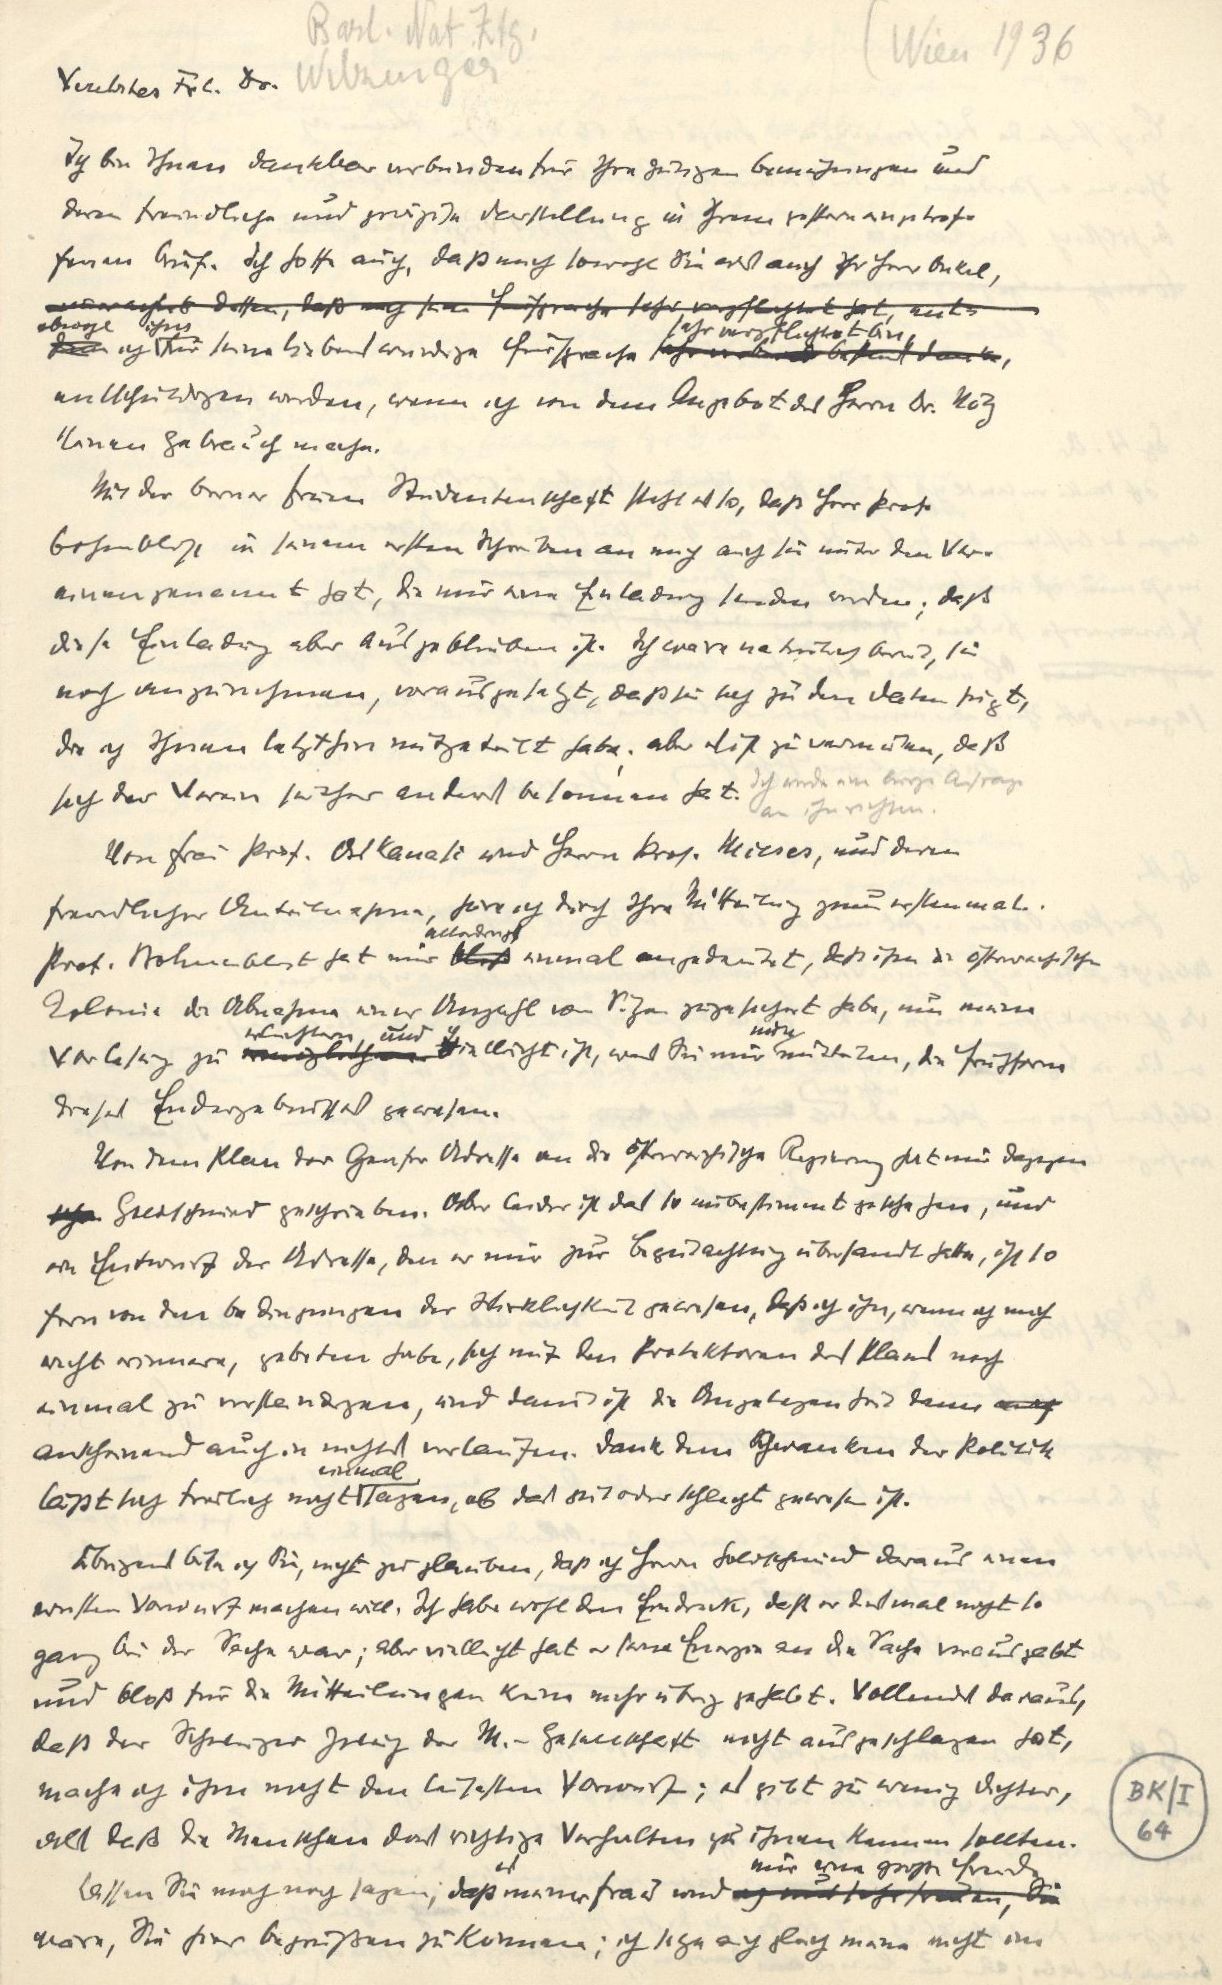 Basl. Nat. Ztg. (Wien 1936
Verehrtes Frl. Dr.
Ich bin Ihnen dankbar verbunden für Ihre gütigen Bemühungen und
deren freundliche und präzise Darstellung in Ihrem gestern eingetrof-
fenen Brief. Ich hoffe auch, daß mich sowohl Sie als auch Ihr Herr Onkel,
dessen, daß mich seine Fürsprache sehr verpflichtet hat, ent-
obwohl ihm sehr verpflichtet bin,
ich für seine liebenswürdige Fürsprache danke,
entschuldigen werden, wenn ich von dem Angebot des Herrn Dr.
keinen Gebrauch mache.
Mit der Berner freien Studentenschaft steht es so, daß Herr Prof.
Bohnenblust in seinem ersten Schreiben an mich auch sie unter den Ver-
einen genannt hat, die mir eine Einladung senden werden; daß
diese Einladung aber ausgeblieben ist. Ich wäre natürlich bereit, sie
noch anzunehmen, vorausgesetzt, daß sie sich zu den Daten fügt,
die ich Ihnen letzthin mitgeteilt habe; aber es ist zu vermuten, daß
sich der Verein seither anders besonnen hat. Ich werde eine kurze Anfrage
an ihn richten.
Von Frau Prof. und Herrn Prof. und deren
freundlicher Anteilnahme, höre ich durch Ihre Mitteilung zum erstenmal.
allerdings
Prof. Bohnenblust hat mir bloß einmal angedeutet, daß ihm die österreichische
Kolonie die Abnahme einer Anzahl von Sitzen zugesichert habe, um meine
erleichtern, und noch
Vorlesung zu ermöglichen vielleicht ist, was Sie mir mitteilen, die Frühform
dieses Endergebnisses gewesen.
Von dem Plan der Genfer Adresse an die österreichische Regierung hat mir dagegen
Goldschmied geschrieben. Aber leider ist das so unbestimmt geschehen, und
ein Entwurf der Adresse, den er mir zur Begutachtung übersandt hatte, ist so
fern von den Bedingungen der Wirklichkeit gewesen, daß ich ihn, wenn ich mich
recht erinnere, gebeten habe, sich mit den Protektoren des Plans noch
einmal zu verständigen, und damit ist die Angelegenheit dann
anscheinend auch in nichts verlaufen. Dank dem Schwanken der Politik
einmal
läßt sich freilich nicht sagen, ob das gut oder schlecht gewesen ist.
Übrigens bitte ich Sie, nicht zu glauben, daß ich Herrn Goldschmied daraus einen
ernsten Vorwurf machen will. Ich habe wohl den Eindruck, daß er diesmal nicht so
ganz bei der Sache war; aber vielleicht hat er seine Energie an die Sache verausgabt
und bloß für die Mitteilungen keine mehr übrig gehabt. Vollends daraus,
daß der Schweizer Zweig der M.-Gesellschaft nicht ausgeschlagen hat,
mache ich ihm nicht den leisesten Vorwurf; es gibt zu wenig Dichter,
als daß die Menschen das richtige Verhalten zu ihnen kennen sollten.
es mir eine große Freude
Lassen Sie mich noch sagen, daß meiner Frau und ich uns sehr freuen, Sie
wäre, Sie hier begrüßen zu können; ich sehe auch gleich meine nicht im
BK/I
64